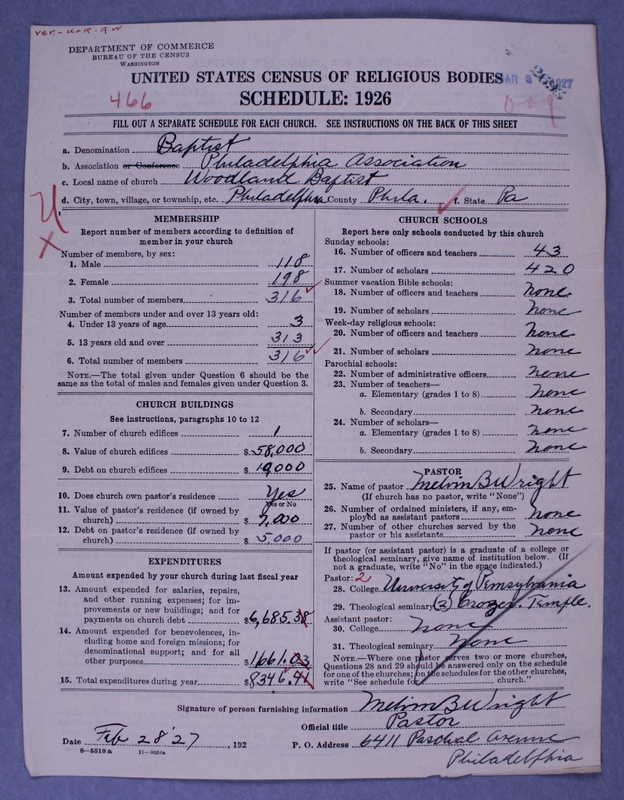 ver-U-R-A.W
DEPARTMENT OF COMMERCE
BUREAU OF THE CENSUS
WASHINGTON
UNITED STATES CENSUS OF RELIGIOUS BODIES
466
SCHEDULE: 1926
FILL OUT A SEPARATE SCHEDULE FOR EACH CHURCH. SEE INSTRUCTIONS ON THE BACK OF THIS SHEET
a. Denomination Baptist
b. Association or Conference Philadelphia Association
c. Local name of church Woodland Baptist
d. City, town, village, or township, etc. Philadelphia County Phila. f. State Pa
MEMBERSHIP
Report number of members according to definition of
member in your church
Number of members, by sex:
1. Male 118
2. Female 198
3. Total number of members 316
Number of members under and over 13 years old:
4. Under 13 years of age 3
5. 13 years old and over 313
6. Total number of members 316
NOTE.—The total given under Question 6 should be the
same as the total of males and females given under Question 3.
CHURCH BUILDINGS
See instructions, paragraphs 10 to 12
7. Number of church edifices 1
8. Value of church edifices $58,000
9. Debt on church edifices $19,000
10. Does church own pastor's residence Yes
Yes or No
11. Value of pastor's residence (if owned by
church) $7,000
12. Debt on pastor's residence (if owned by
church) $5,000
EXPENDITURES
Amount expended by your church during last fiscal year
13. Amount expended for salaries, repairs,
and other running expenses; for im-
provements or new buildings; and for
payments on church debt $6,685.38
14. Amount expended for benevolences, in-
cluding home and foreign missions; for
denominational support; and for all
other purposes $1661.03
15. Total expenditures during year $8346.41
CHURCH SCHOOLS
Report here only schools conducted by this church
Sunday schools:
16. Number of officers and teachers 43
17. Number of scholars 420
Summer vacation Bible schools:
18. Number of officers and teachers none
19. Number of scholars none
Week-day religious schools:
20. Number of officers and teachers none
21. Number of scholars none
Parochial schools:
22. Number of administrative officers none
23. Number of teachers—
a. Elementary (grades 1 to 8) none
b. Secondary none
24. Number of scholars—
a. Elementary (grades 1 to 8) none
b. Secondary none
PASTOR
25. Name of pastor Melvin B Wright
(If church has no pastor, write "None")
26. Number of ordained ministers, if any, em-
ployed as assistant pastors none
27. Number of other churches served by the
pastor or his assistants none
If pastor (or assistant pastor) is a graduate of a college or
theological seminary, give name of institution below. (If
not a graduate, write "No" in the space indicated.)
Pastor: 2
28. College University of Pennsylvania
29. Theological seminary (2) Crozer. Temple.
Assistant pastor:
30. College none
31. Theological seminary none
NOTE.—Where one pastor serves two or more churches,
Questions 28 and 29 should be answered only on the schedule
for one of the churches; on the schedules for the other churches,
write "See schedule for church."
Signature of person furnishing information Melvin B Wright
Official title Pastor
Date Feb 28 '27, 192 P. O. Address 6411 Paschal Avenue
8-5518a Philadelphia